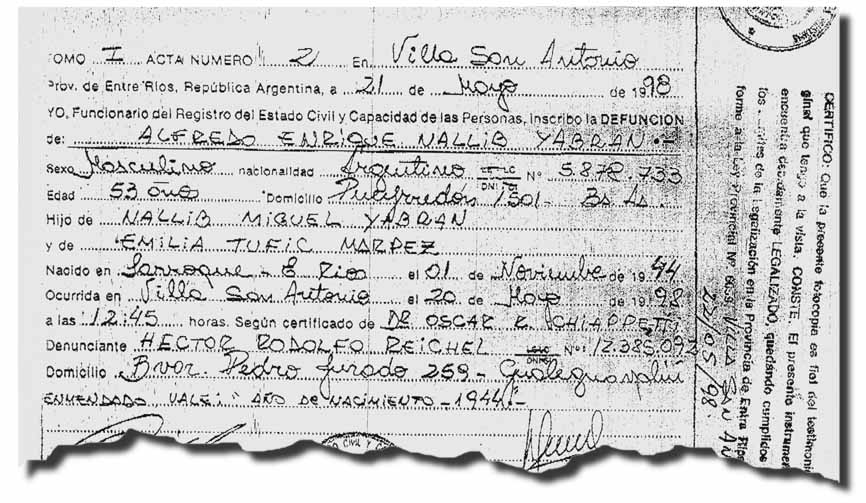 TOMO I ACTA NUMERO 2 En Villa San Antonio
Prov. de Entre Ríos, República Argentina, a 21 de Mayo de 1998
YO, Funcionario del Registro del Estado Civil y Capacidad de las Personas, inscribo la DEFUNCION
de: ALFREDO ENRIQUE NALLIB YABRAN.-
Sexo Masculino nacionalidad Argentino DNI Nº 5.872.733
Edad 53 años Domicilio Pueyrredón 1501- Bs As.
Hijo de NALLIB MIGUEL YABRAN
y de EMILIA TUFIC MARPEZ
Nacido en Larroque - E Rios el 01 de Noviembre de 1944
Ocurrida en Villa San Antonio el 20 de Mayo de 1998
a las 12:45 horas. Según certificado de DR OSCAR R. CHIAPPETTI
Denunciante HECTOR RODOLFO REICHEL DNI Nº: 12.385.092
Domicilio Bvar. Pedro Jurado 259 - Gualeguaychú
ENMENDADO VALE: AÑO DE NACIMIENTO - 1944 -
CIVIL Y
CERTIFICO: Que la presente fotocopia es fiel del testimonio
ginal que tengo a la vista. CONSTE. El presente instrumen
encuentra debidamente LEGALIZADO, quedando cumplidos
los de la legalización en la Provincia de Entre Ríos
forme a la Ley Provincial Nº VILLA SAN AN
22/05/98